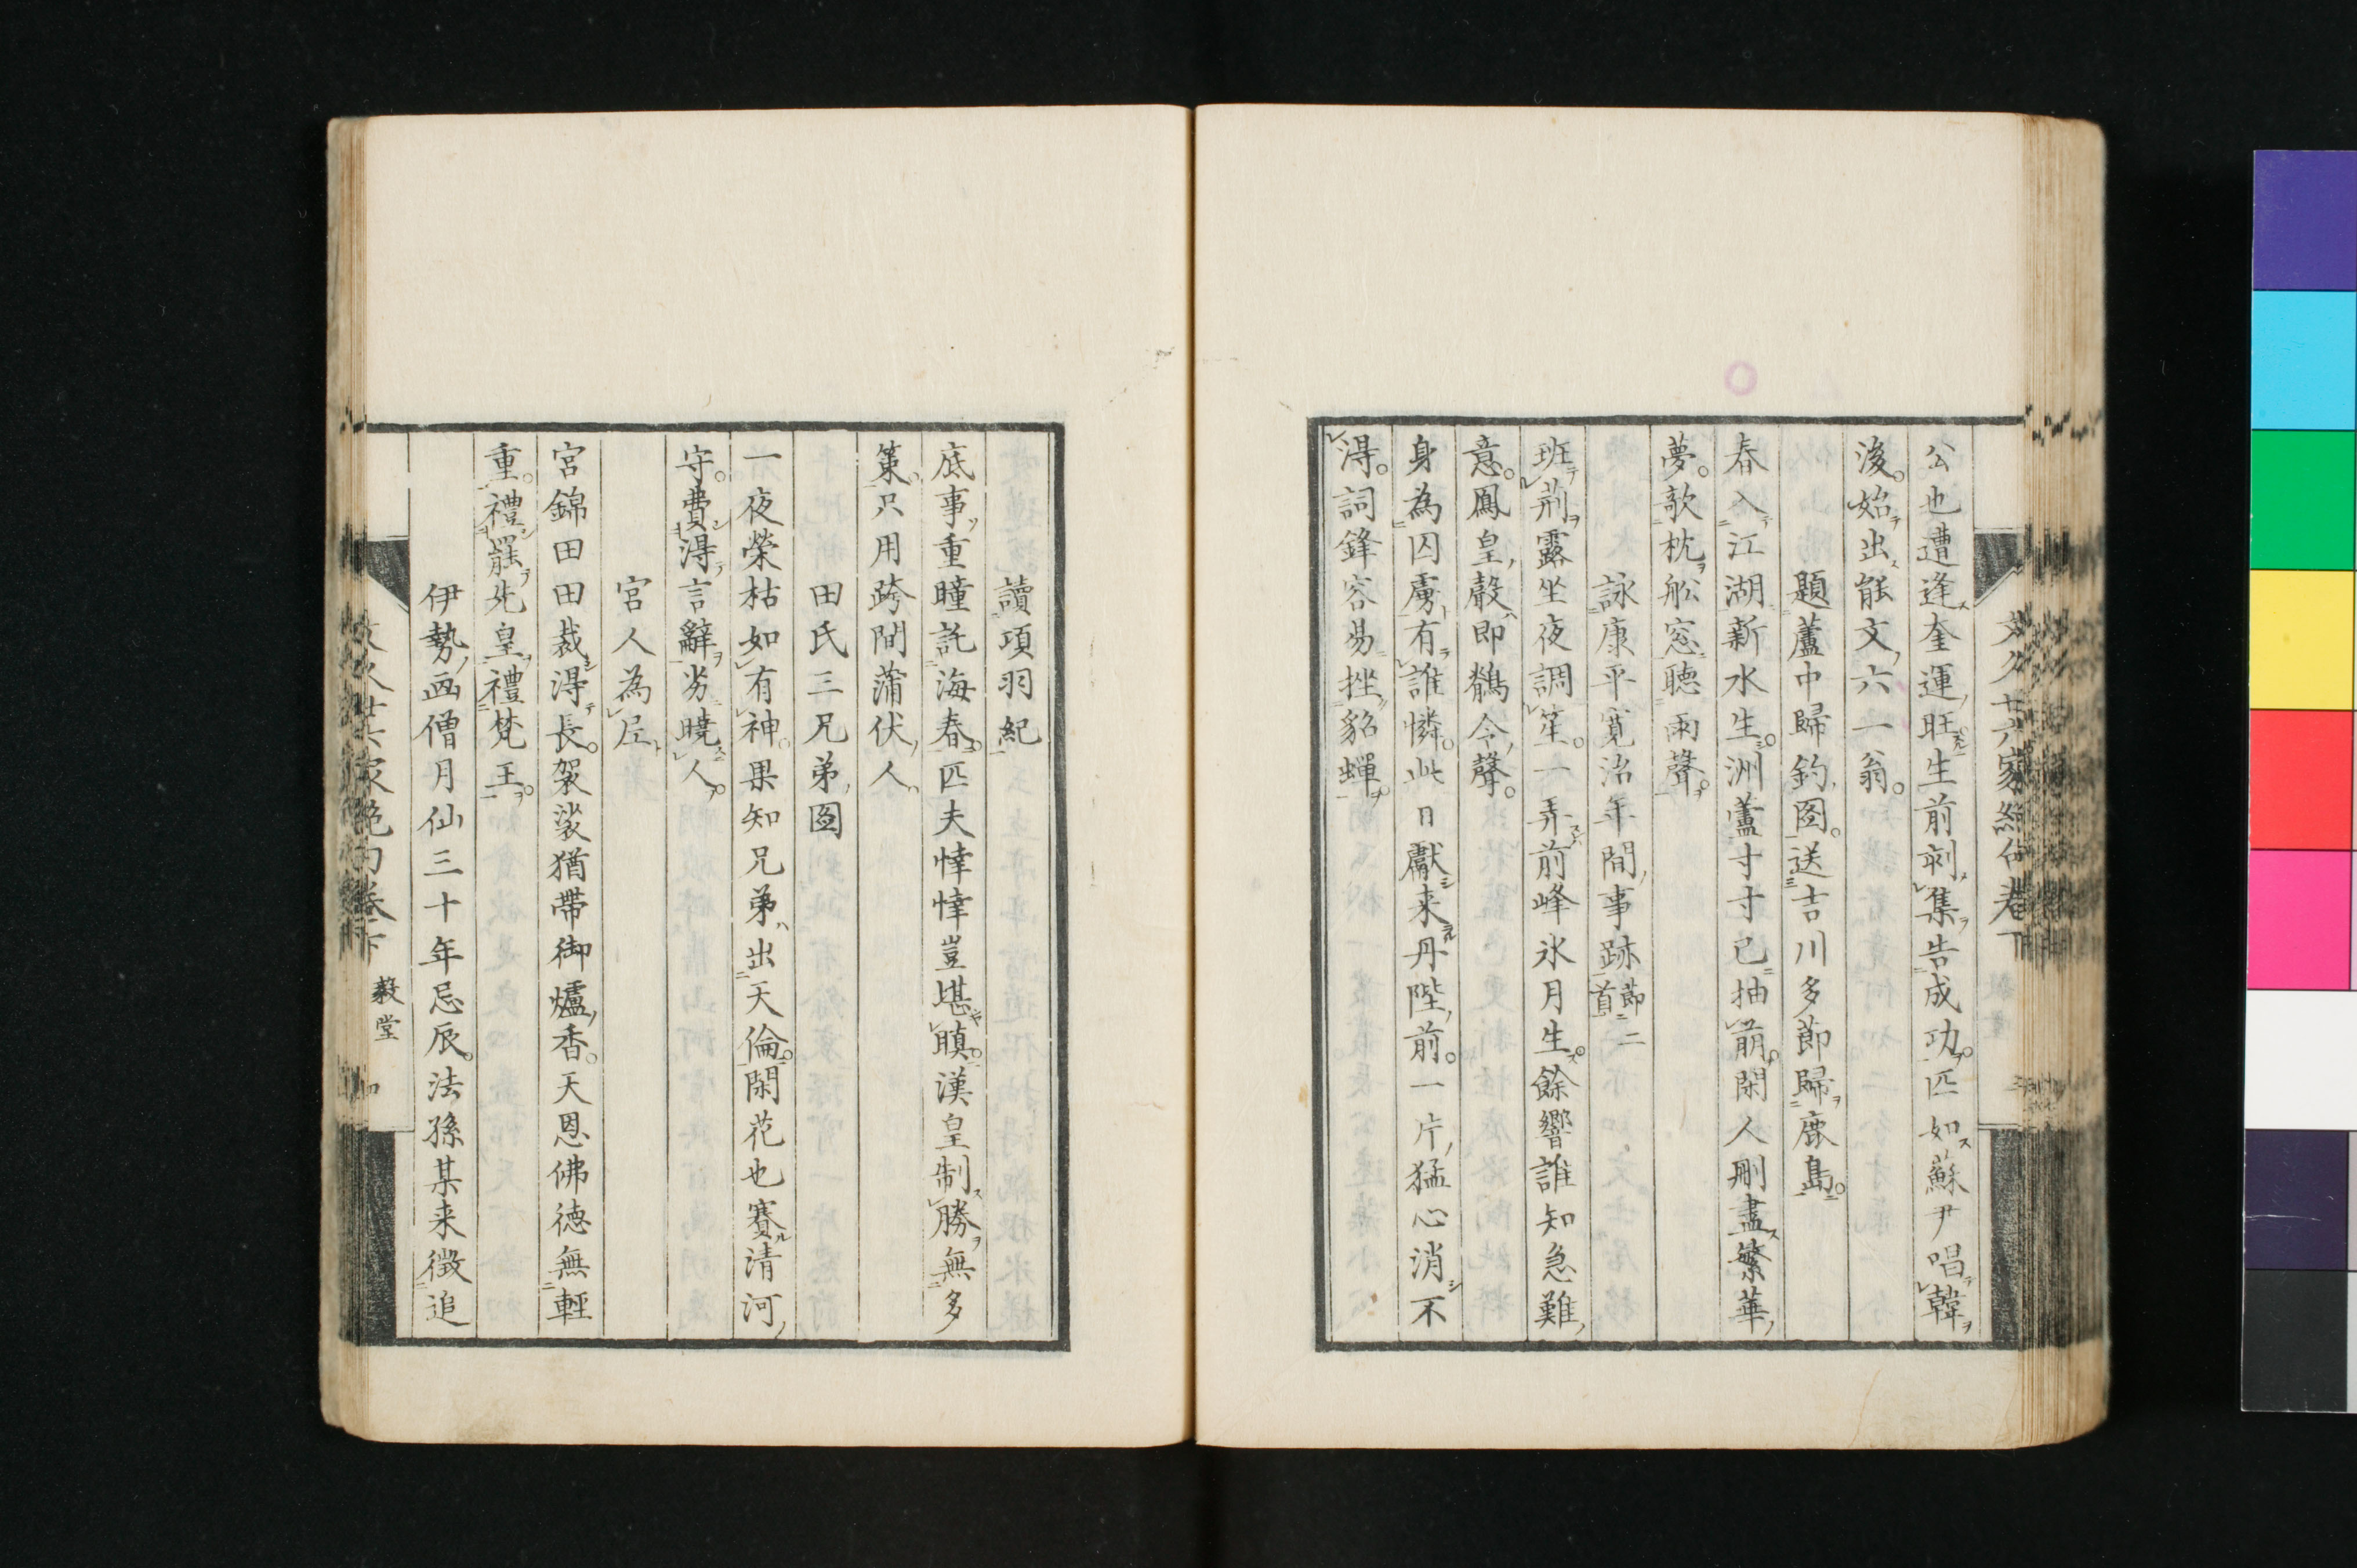 公也遭逢奎運旺生前刺集告成功。匹如蘇尹唱韓
後。始出能文六一翁。
題蘆中歸釣圖。送吉川多節歸鹿島。
春入江湖新水生。洲蘆寸寸已抽萌。閑人刪盡繁華
夢。歌枕舩窓聽雨聲。
詠康平寛治年間事跡 節二首二
班荊露坐夜調笙。一弄前峰氷月生。餘響誰知急難
意。鳳皇聲即鶺令聲。
身為囚虜有誰憐。此日獻来丹陛前。一片猛心消不
得。詞鋒容易挫貂蟬。
讀項羽紀
底事重瞳託海春。匹夫悻悻豈堪瞋。漢皇制勝無多
策。只用跨間蒲伏人。
田氏三兄弟圖
一夜榮枯如有神。果知兄弟出天倫。閑花也賽清河
守。費得言辭劣曉人。
宮人為尼
宮錦田田裁得長。袈裟猶帶御爐香。天恩佛徳無輕
重。禮罷先皇禮梵王。
伊勢画僧月仙三十年忌辰。法孫某来徴追
文久廿六家絶句卷下 毅堂